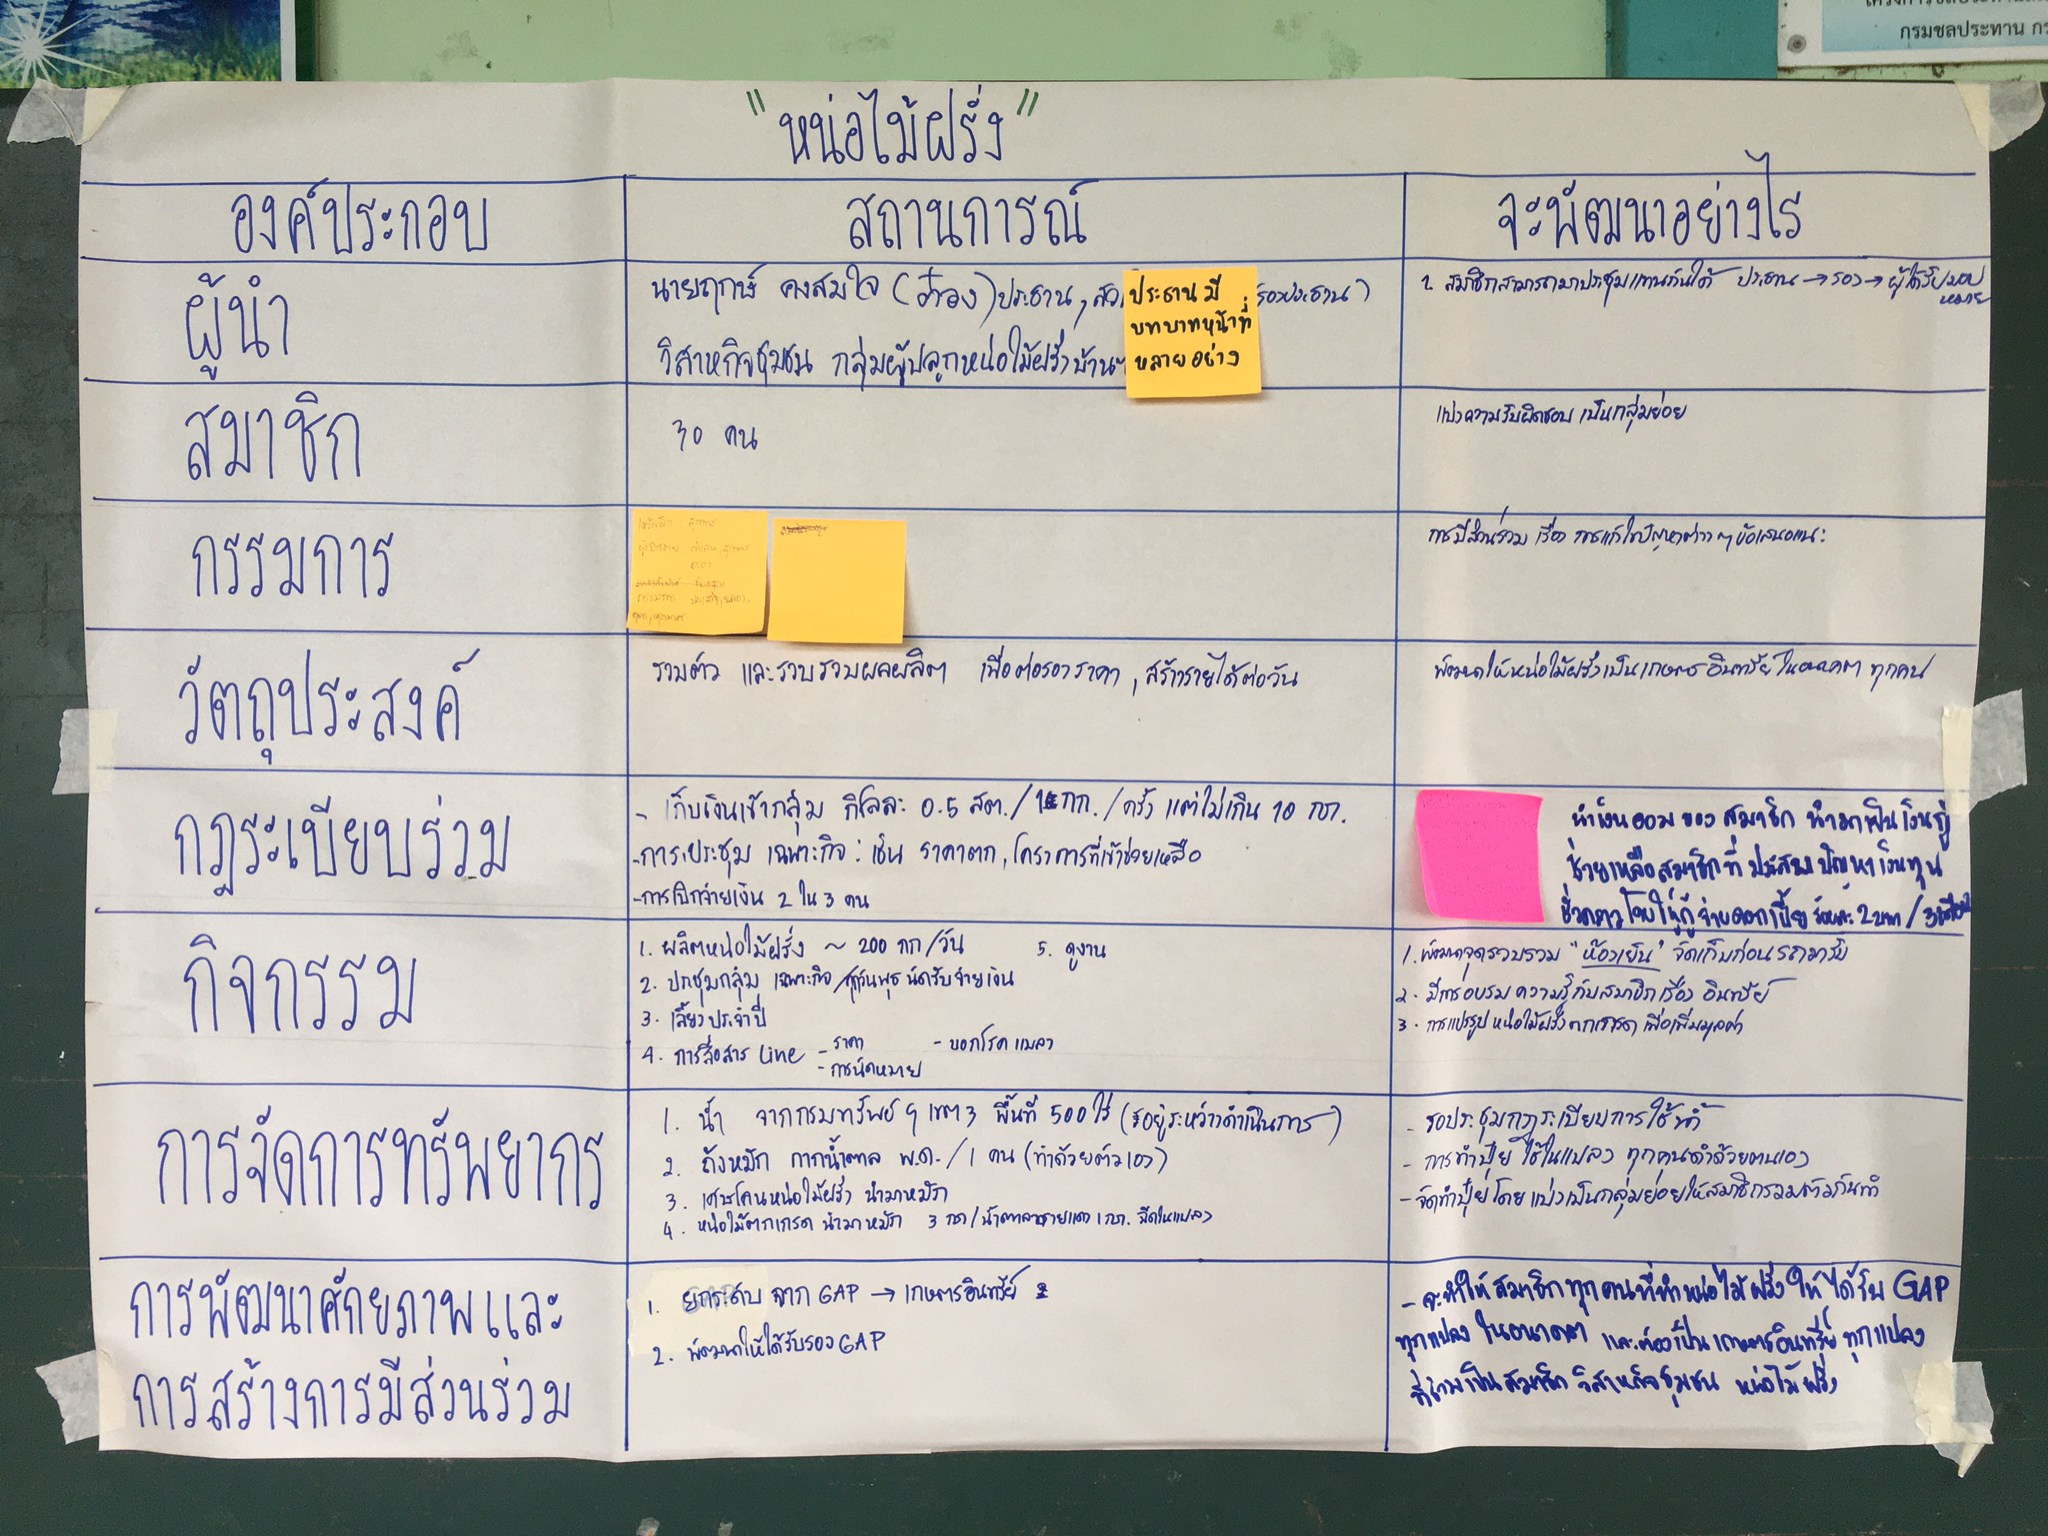 กรมชลประทาน
"หน่อไม้ฝรั่ง"
องค์ประกอบ
สถานการณ์
จะพัฒนาอย่างไร
ผู้นำ
นายฤกษ์ คงสมใจ ประธาน, รองประธาน)
วิสาหกิจชุมชน กลุ่มผู้ปลูกหน่อไม้ฝรั่งบ้าน
ประธานมี
บทบาทหน้าที่
หลายอย่าง
1. สมาชิกสามารถมาประชุมแทนกันได้ ประธาน → รอง → ผู้ได้รับมอบ
หมาย
สมาชิก
30 คน
แบ่งความรับผิดชอบ เป็นกลุ่มย่อย
กรรมการ
การมีส่วนร่วม เรื่อง การแก้ไขปัญหาต่างๆ ข้อเสนอแนะ
วัตถุประสงค์
รวมตัว และรวบรวมผลผลิต เพื่อต่อรองราคา, สร้างรายได้ต่อวัน
พัฒนาให้หน่อไม้ฝรั่งเป็นเกษตรอินทรีย์ ในอนาคต ทุกคน
กฎระเบียบร่วม
- เก็บเงินเข้ากลุ่ม กิโลละ 0.5 สต./1 กก./ครั้ง แต่ไม่เกิน 10 กก.
- การประชุม เฉพาะกิจ : เช่น ราคาตก, โครงการที่เข้าช่วยเหลือ
- การเบิกจ่ายเงิน 2 ใน 3 คน
นำเงินออม ของ สมาชิก นำมาเป็นเงินกู้
ช่วยเหลือสมาชิกที่ ประสบ ปัญหาเงินทุน
ชั่วคราว โดยให้ผู้กู้ จ่ายดอกเบี้ย ร้อยละ 2 บาท / 3 เดือน
กิจกรรม
1. ผลิตหน่อไม้ฝรั่ง ~ 200 กก/วัน 5. ดูงาน
2. ประชุมกลุ่ม เฉพาะกิจ /ทุกวันพุธ นัดรับจ่ายเงิน
3. เลี้ยงประจำปี
4. การสื่อสาร Line - ราคา - บอกโรค แมลง
- การนัดหมาย
1. พัฒนาจุดรวบรวม "ห้องเย็น" จัดเก็บก่อนรถมารับ
2. มีการอบรม ความรู้กับสมาชิกเรื่อง อินทรีย์
3. การแปรรูป หน่อไม้ฝรั่งตกเกรด เพื่อเพิ่มมูลค่า
การจัดการทรัพยากร
1. น้ำ จากกรมทรัพย์ฯ เขต 3 พื้นที่ 500 ไร่ (รออยู่ระหว่างดำเนินการ)
2. ถังหมัก กากน้ำตาล พ.ด. / 1 คน (ทำด้วยตัวเอง)
3. เศษโคนหน่อไม้ฝรั่ง นำมาหมัก
4. หน่อไม้ตกเกรด นำมาหมัก 3 กก / น้ำตาลทรายแดง 1 กก. ฉีดในแปลง
- รอประชุมกฎระเบียบการใช้น้ำ
- การทำปุ๋ย ใช้ในแปลง ทุกคนทำด้วยตนเอง
- จัดทำปุ๋ย โดย แบ่งเป็นกลุ่มย่อยให้สมาชิกรวมตัวกันทำ
การพัฒนาศักยภาพและ
การสร้างการมีส่วนร่วม
1. ยกระดับ จาก GAP → เกษตรอินทรีย์
2. พัฒนาให้ได้รับรอง GAP
- จะทำให้ สมาชิกทุกคนที่ทำหน่อไม้ฝรั่ง ให้ได้รับ GAP
ทุกแปลง ในอนาคต และต้องเป็น เกษตรอินทรีย์ ทุกแปลง
ที่เข้ามาเป็นสมาชิก วิสาหกิจชุมชน หน่อไม้ฝรั่ง